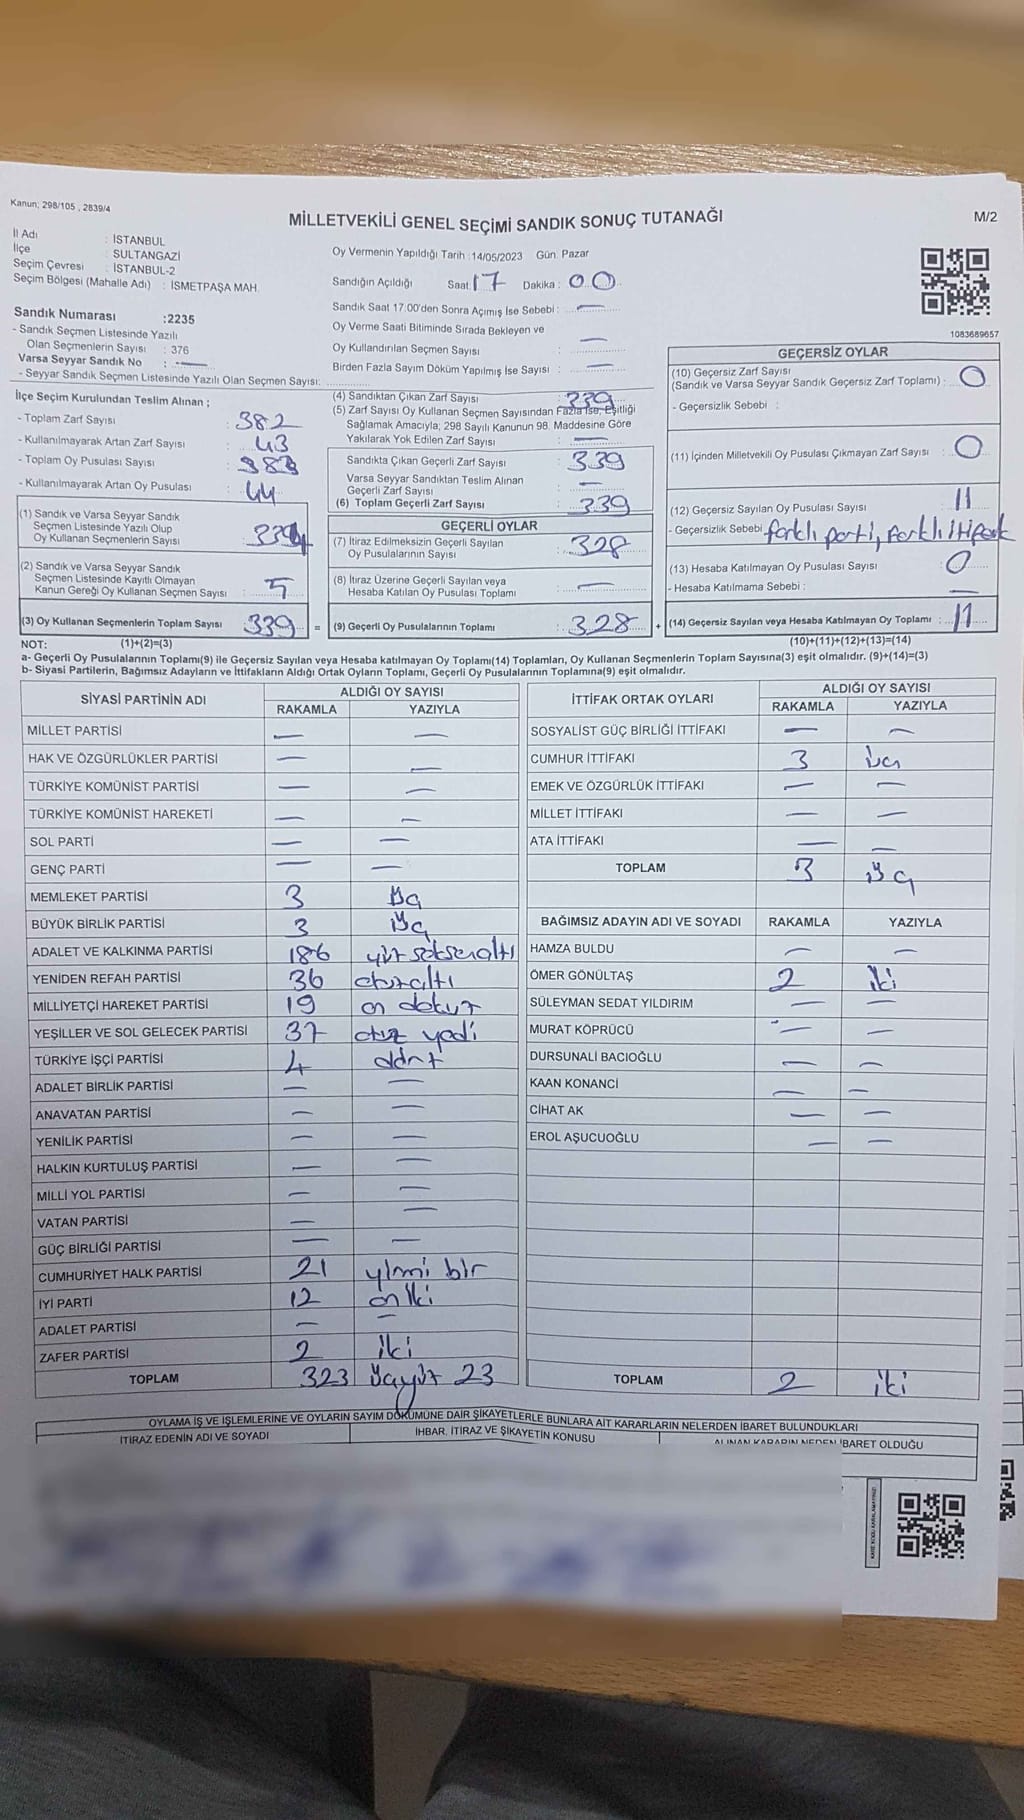 Kanun; 298/105 , 2839/4
MİLLETVEKİLİ GENEL SEÇİMİ SANDIK SONUÇ TUTANAĞI
M/2
İl Adı : İSTANBUL
İlçe : SULTANGAZİ
Seçim Çevresi : İSTANBUL-2
Seçim Bölgesi (Mahalle Adı) : İSMETPAŞA MAH.
Sandık Numarası :2235
- Sandık Seçmen Listesinde Yazılı
Olan Seçmenlerin Sayısı : 376
Varsa Seyyar Sandık No : —
- Seyyar Sandık Seçmen Listesinde Yazılı Olan Seçmen Sayısı:
Oy Vermenin Yapıldığı Tarih :14/05/2023 Gün: Pazar
Sandığın Açıldığı Saat: 17 Dakika : 00
Sandık Saat 17:00'den Sonra Açımış İse Sebebi : —
Oy Verme Saati Bitiminde Sırada Bekleyen ve
Oy Kullandırılan Seçmen Sayısı : —
Birden Fazla Sayım Döküm Yapılmış İse Sayısı : —
1083689657
İlçe Seçim Kurulundan Teslim Alınan ;
- Toplam Zarf Sayısı : 382
- Kullanılmayarak Artan Zarf Sayısı : 43
- Toplam Oy Pusulası Sayısı : 383
- Kullanılmayarak Artan Oy Pusulası : 44
(1) Sandık ve Varsa Seyyar Sandık
Seçmen Listesinde Yazılı Olup
Oy Kullanan Seçmenlerin Sayısı : 334
(2) Sandık ve Varsa Seyyar Sandık
Seçmen Listesinde Kayıtlı Olmayan
Kanun Gereği Oy Kullanan Seçmen Sayısı : 5
(3) Oy Kullanan Seçmenlerin Toplam Sayısı : 339 =
(4) Sandıktan Çıkan Zarf Sayısı : 339
(5) Zarf Sayısı Oy Kullanan Seçmen Sayısından Fazla İse, Eşitliği
Sağlamak Amacıyla; 298 Sayılı Kanunun 98. Maddesine Göre
Yakılarak Yok Edilen Zarf Sayısı : —
Sandıkta Çıkan Geçerli Zarf Sayısı : 339
Varsa Seyyar Sandıktan Teslim Alınan
Geçerli Zarf Sayısı : —
(6) Toplam Geçerli Zarf Sayısı : 339
GEÇERLİ OYLAR
(7) İtiraz Edilmeksizin Geçerli Sayılan
Oy Pusulalarının Sayısı : 328
(8) İtiraz Üzerine Geçerli Sayılan veya
Hesaba Katılan Oy Pusulası Toplamı : —
(9) Geçerli Oy Pusulalarının Toplamı : 328 +
GEÇERSİZ OYLAR
(10) Geçersiz Zarf Sayısı
(Sandık ve Varsa Seyyar Sandık Geçersiz Zarf Toplamı) : 0
- Geçersizlik Sebebi :
(11) İçinden Milletvekili Oy Pusulası Çıkmayan Zarf Sayısı : 0
(12) Geçersiz Sayılan Oy Pusulası Sayısı : 11
- Geçersizlik Sebebi : farklı parti, farklı itifak
(13) Hesaba Katılmayan Oy Pusulası Sayısı : 0
- Hesaba Katılmama Sebebi : —
(14) Geçersiz Sayılan veya Hesaba Katılmayan Oy Toplamı : 11
NOT: (1)+(2)=(3) (10)+(11)+(12)+(13)=(14)
a- Geçerli Oy Pusulalarının Toplamı(9) ile Geçersiz Sayılan veya Hesaba katılmayan Oy Toplamı(14) Toplamları, Oy Kullanan Seçmenlerin Toplam Sayısına(3) eşit olmalıdır. (9)+(14)=(3)
b- Siyasi Partilerin, Bağımsız Adayların ve İttifakların Aldığı Ortak Oyların Toplamı, Geçerli Oy Pusulalarının Toplamına(9) eşit olmalıdır.
SİYASİ PARTİNİN ADI ALDIĞI OY SAYISI
RAKAMLA YAZIYLA
MİLLET PARTİSİ — —
HAK VE ÖZGÜRLÜKLER PARTİSİ — —
TÜRKİYE KOMÜNİST PARTİSİ — —
TÜRKİYE KOMÜNİST HAREKETİ — —
SOL PARTİ — —
GENÇ PARTİ — —
MEMLEKET PARTİSİ 3 üç
BÜYÜK BİRLİK PARTİSİ 3 üç
ADALET VE KALKINMA PARTİSİ 186 yüz seksenaltı
YENİDEN REFAH PARTİSİ 36 otuzaltı
MİLLİYETÇİ HAREKET PARTİSİ 19 on dokuz
YEŞİLLER VE SOL GELECEK PARTİSİ 37 otuz yedi
TÜRKİYE İŞÇİ PARTİSİ 4 dört
ADALET BİRLİK PARTİSİ — —
ANAVATAN PARTİSİ — —
YENİLİK PARTİSİ — —
HALKIN KURTULUŞ PARTİSİ — —
MİLLİ YOL PARTİSİ — —
VATAN PARTİSİ — —
GÜÇ BİRLİĞİ PARTİSİ — —
CUMHURİYET HALK PARTİSİ 21 yimi bir
İYİ PARTİ 12 on iki
ADALET PARTİSİ — —
ZAFER PARTİSİ 2 iki
TOPLAM 323 üçyüz 23
İTTİFAK ORTAK OYLARI ALDIĞI OY SAYISI
RAKAMLA YAZIYLA
SOSYALİST GÜÇ BİRLİĞİ İTTİFAKI — —
CUMHUR İTTİFAKI 3 üç
EMEK VE ÖZGÜRLÜK İTTİFAKI — —
MİLLET İTTİFAKI — —
ATA İTTİFAKI — —
TOPLAM 3 üç
BAĞIMSIZ ADAYIN ADI VE SOYADI RAKAMLA YAZIYLA
HAMZA BULDU — —
ÖMER GÖNÜLTAŞ 2 iki
SÜLEYMAN SEDAT YILDIRIM — —
MURAT KÖPRÜCÜ — —
DURSUNALİ BACIOĞLU — —
KAAN KONANCİ — —
CİHAT AK — —
EROL AŞUCUOĞLU — —
TOPLAM 2 iki
OYLAMA İŞ VE İŞLEMLERİNE VE OYLARIN SAYIM DÖKÜMÜNE DAİR ŞİKAYETLERLE BUNLARA AİT KARARLARIN NELERDEN İBARET BULUNDUKLARI
İTİRAZ EDENİN ADI VE SOYADI İHBAR, İTİRAZ VE ŞİKAYETİN KONUSU ALINAN KARARIN NEDEN İBARET OLDUĞU